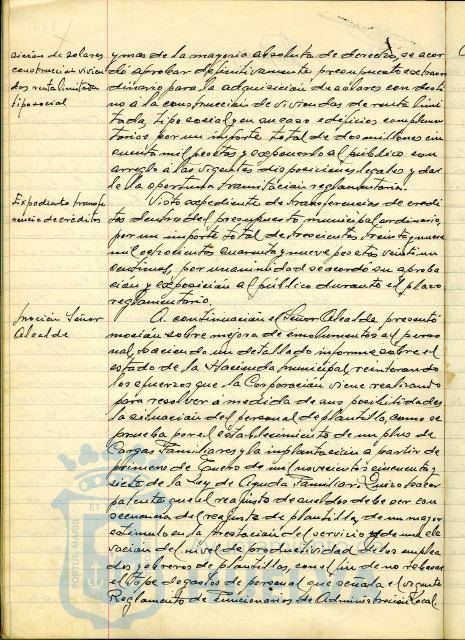 sición de solares
construcción vivien
das renta limitada
tipo social
y mas de la mayoria absoluta de derecho, se acor
dó aprobar definitivamente presupuesto extraor
dinario para la adquisición de solares con desti
no a la construcción de viviendas de renta limi
tada, tipo social y en su caso edificios complemen
tarios por un importe total de dos millones cin
cuenta mil pesetas y exponerlo al público con
arreglo a las vigentes disposiciones legales y dar
le la oportuna tramitación reglamentaria.
Expediente transfe
rencia de créditos
Visto expediente de transferencias de crédi
tos dentro del presupuesto municipal ordinario,
por un importe total de trescientas treinta y nueve
mil ochocientas cuarenta y nueve pesetas veintiun
centimos, por unanimidad se acordó su aproba
ción y exposición al público durante el plazo
reglamentario.
Moción Señor
Alcalde
A continuación el Señor Alcalde presentó
moción sobre mejora de emolumentos al perso
nal, haciendo un detallado informe sobre el
estado de la Hacienda municipal, reiterando
los esfuerzos que la Corporación viene realizando
para resolver a medida de sus posibilidades
la situación del personal de plantilla, como se
prueba por el establecimiento de un plus de
Cargas Familiares, y la implantación a partir de
primero de Enero de mil novecientos cincuenta y
siete de la Ley de Ayuda Familiar. Quiso hacer
patente que el reajuste de sueldos debe ser con
secuencia del reajuste de plantilla, de un mayor
estimulo en la prestación del servicio y de una ele
vación del nivel de productividad de los emplea
dos y obreros de plantillas, con el fin de no rebasar
el tope de gastos de personal que señala el vigente
Reglamento de Funcionarios de Administración Local.
ET
PORTUS MARIS